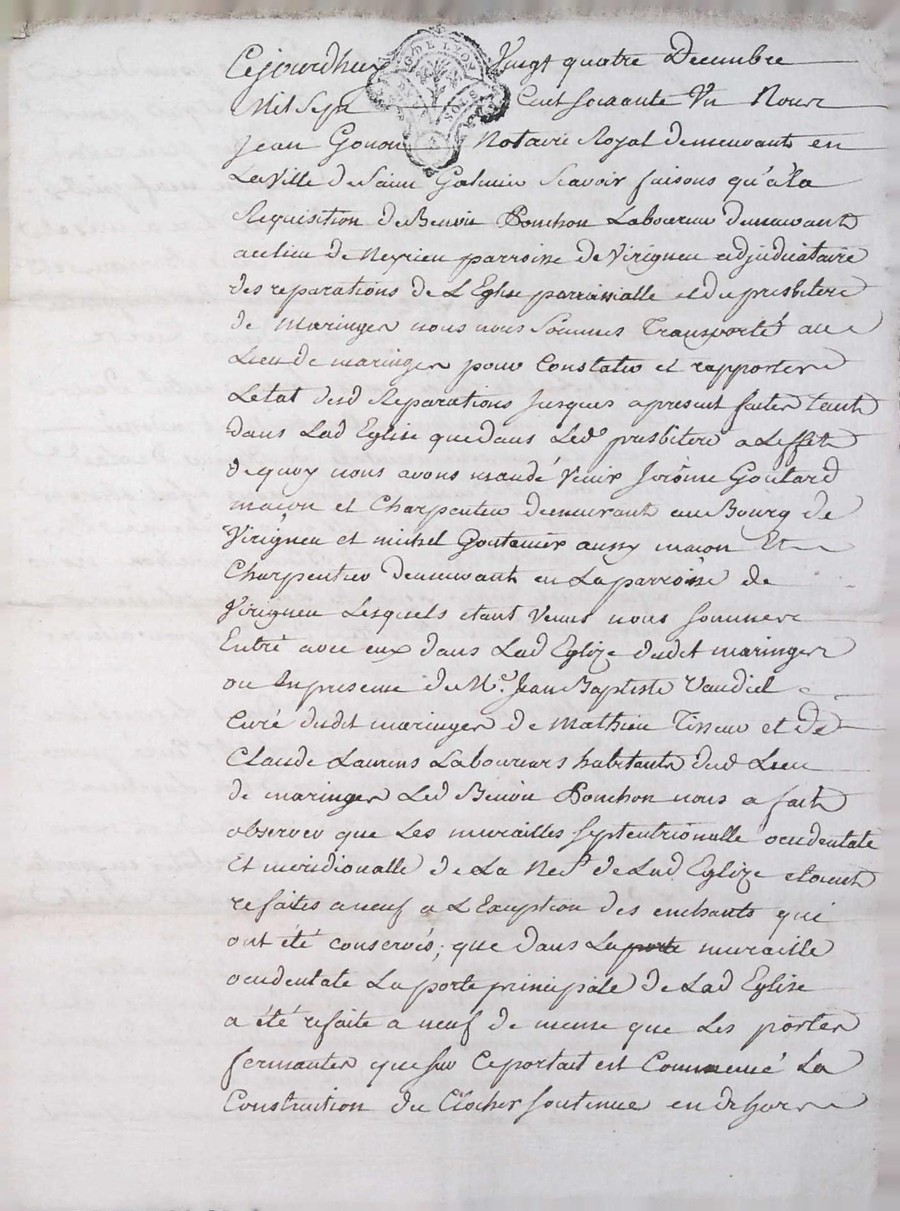 Cejourdhuy Vingt quatre Decembre
G. DE LYON
Mil Sept Cent soixante Un Nous
Jean Gonon Notaire Royal demeurants en
La Ville de Saint Galmier scavoir faisons qu'a la
Requisition de Benoit Ponchon Laboureur demeurant
au lieu de Neyrieu parroisse de Virigneu adjudicataire
des reparations de L'Eglise parroissialle et du presbitere
de Maringes nous nous sommes Transporté au
Lieu de maringes pour Constater et rapporter
L'état desd Reparations jusques apresent faites tant
dans Lad Eglise que dans Led. presbitere a L'effet
de quoy nous avons mandé Venir Jerôme Goutard
maçon et Charpentier demeurant au Bourg de
Virigneu et michel Goutanier aussy macon Et
Charpentier demeurant en La parroisse de
Virigneu Lesquels etant Venus nous sommes
Entré avec eux dans Lad Eglize dudit maringes
ou En presense de Mr. Jean Baptiste Vaudiel
Curé dudit maringes de Mathieu Tisseur et de
Claude Laurens Laboureurs habitants dud Lieu
de maringes Led Benoit Ponchon nous a fait
observer que Les murailles septentrionalle occidentate
Et meridionalle de La Nef de Lad Eglize etoient
refaites aneuf a L'Exception des enchants qui
ont été conservés; que dans La porte muraille
occidentate La porte principale de Lad Eglise
a été refaite a neuf de meme que Les portes
fermantes que sur Ce portait est Commencé La
Construction du Clocher soutenue en dehors